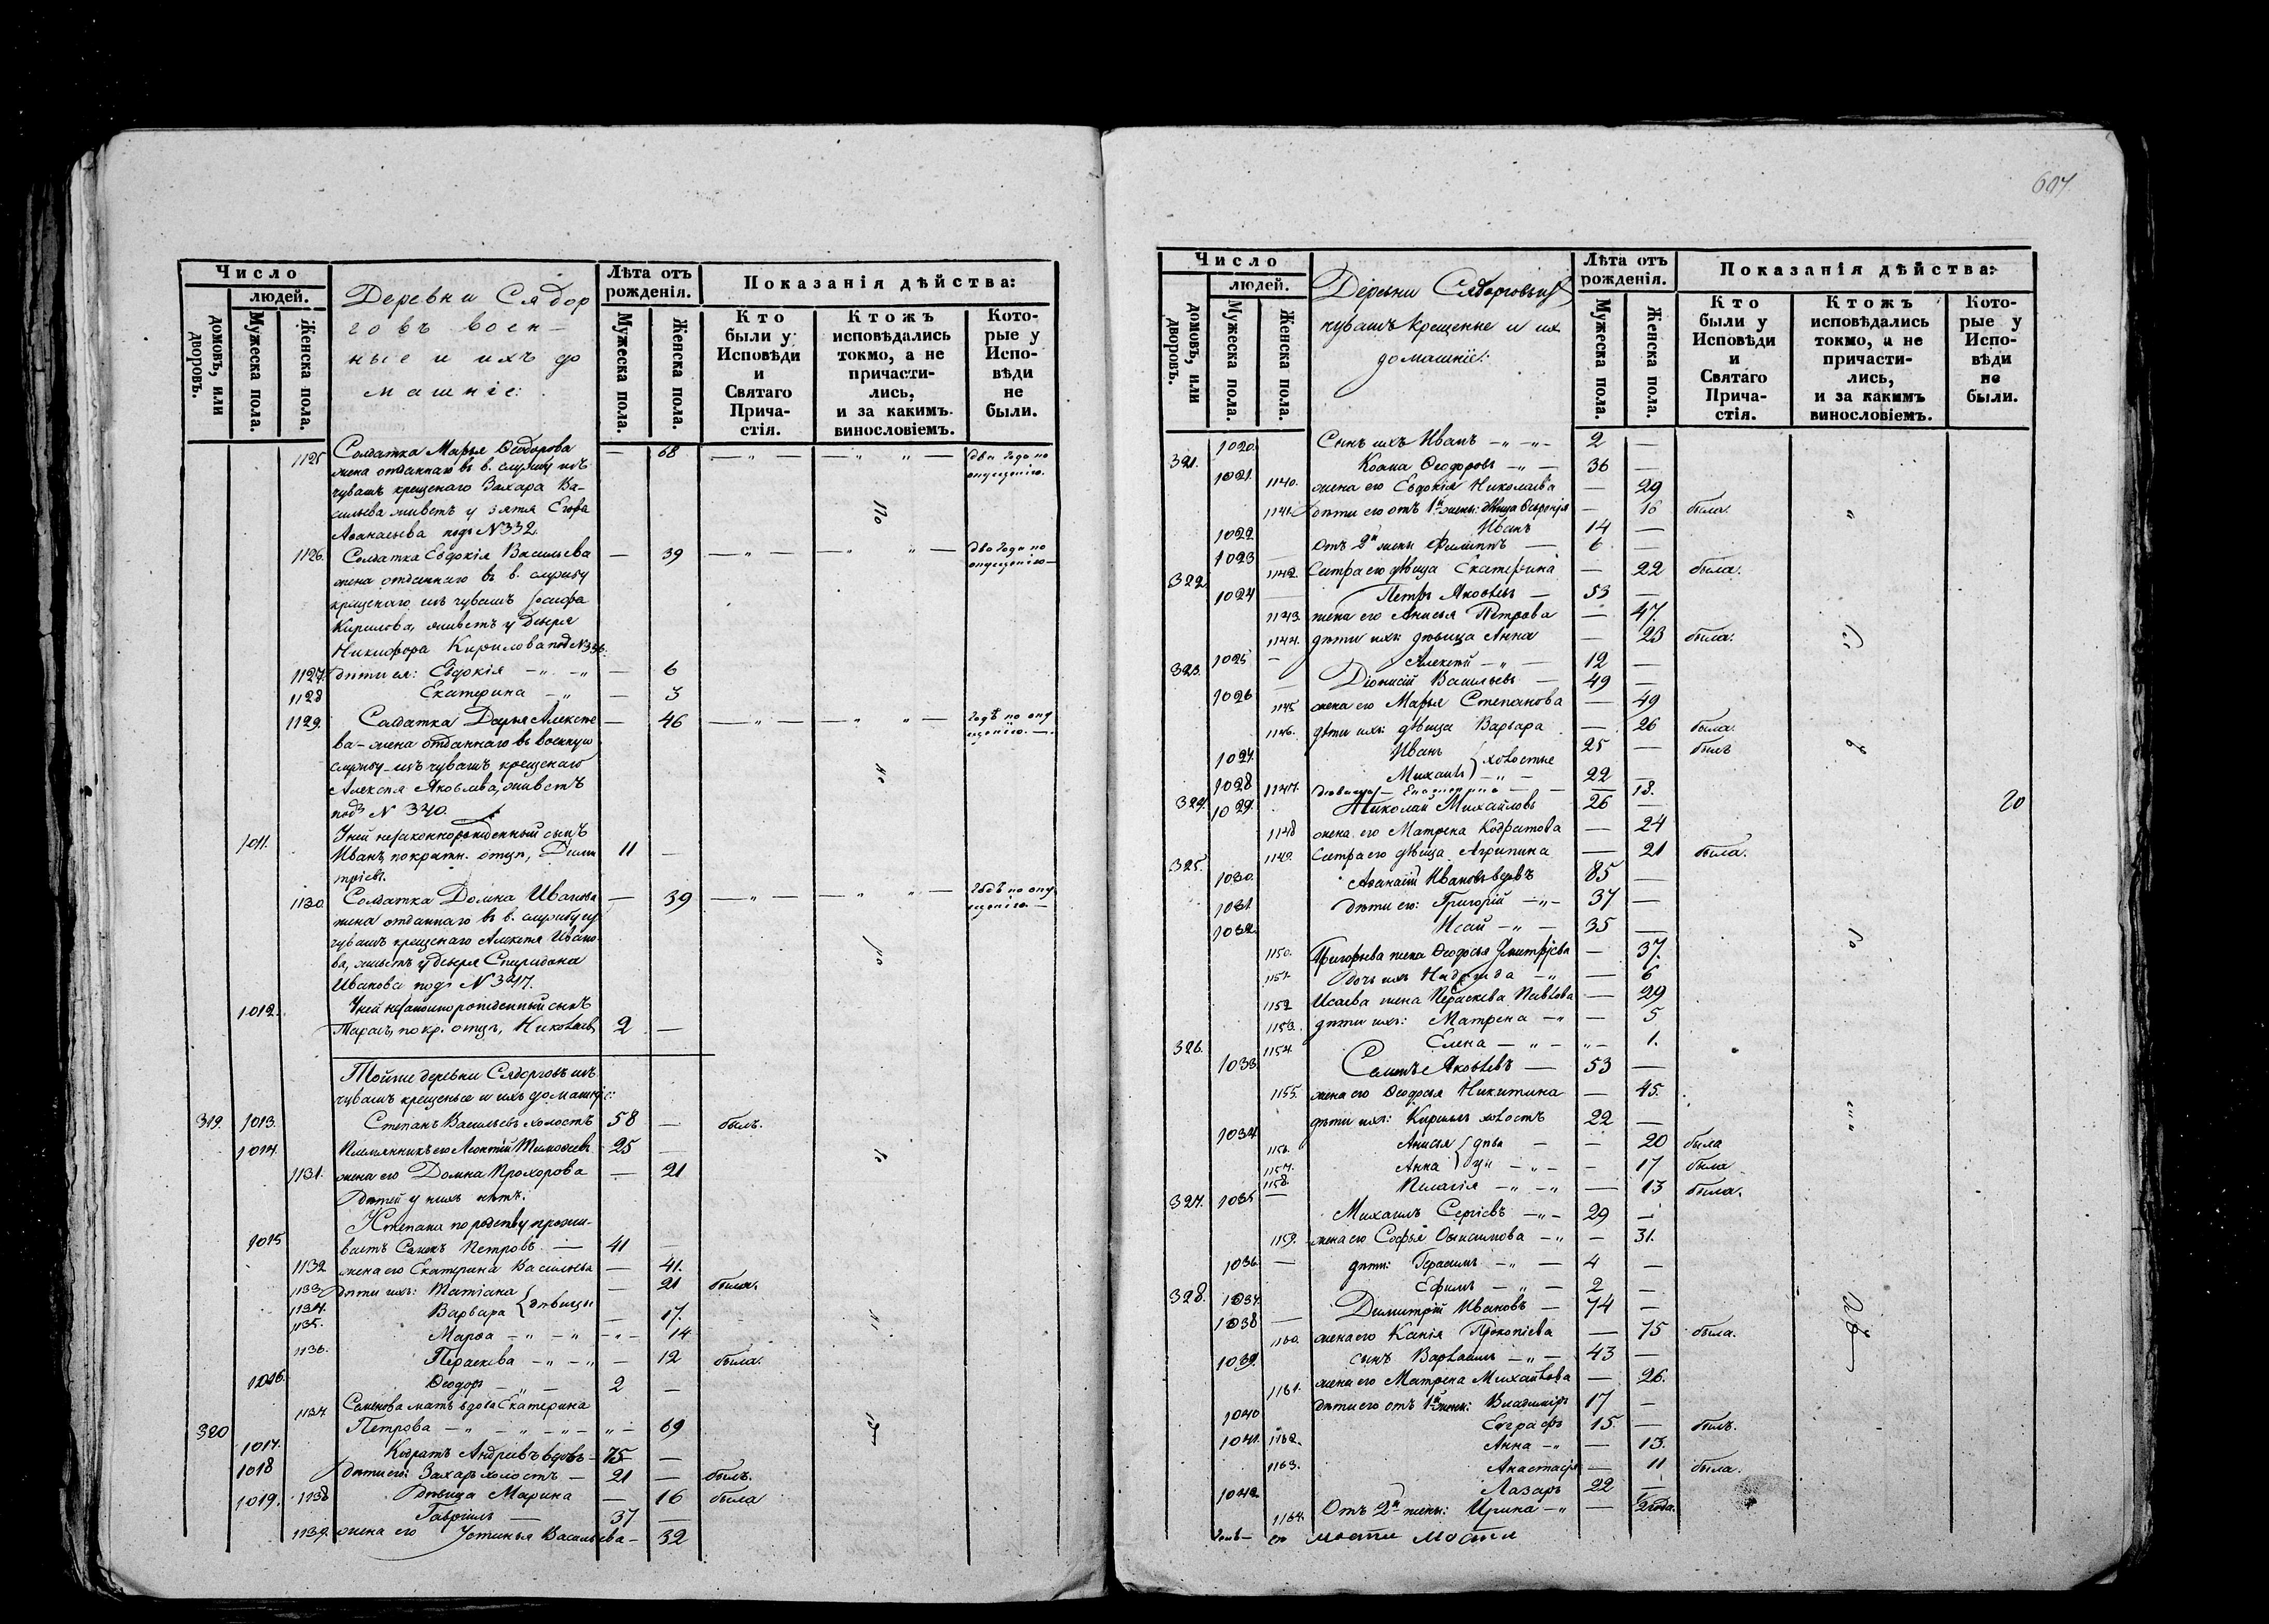 Число
людей.
домовъ, или дворовъ.
Мужеска пола.
Женска пола.
Деревни Сядор
говъ воен–
ные и ихъ до
машніе:
Лѣта отъ
рожденія.
Мужеска пола.
Женска пола.
Показанія дѣйства:
Кто
были у
Исповѣди
и
Святаго
Прича-
стія.
Ктожъ
исповѣдались
токмо, а не
причасти-
лись,
и за какимъ
винословіемъ.
Кото-
рые у
Испо-
вѣди
не
были.
1125 Солдатка Марья Ѳеодорова — 68 — „ — — „ „ — два года по
жена отданнаго въ в. службу изъ опущенію.
чувашъ крещенаго Захара Ва-
сильева живетъ у зятя Егора
Аѳанасьева подъ N 332.
1126. Солдатка Евдокія Васильева — 39 — „ — — „ „ — два года по
жена отданнаго въ в. службу опущенію —
крещенаго изъ чувашъ Іосифа
Кирилова, живетъ у деверя
Никифора Кирилова под N336.
1127. дѣти ея: Евдокія — „ — „ — 6
1128 Екатерина — „ — 3
1129. Солдатка Дарья Алексѣе — 46 — „ — — „ „ — Годъ по опу
ва – жена отданнаго въ военную щенію. —
службу – изъ чувашъ крещенаго
Алексѣя Яковлева, живетъ
подъ N 340.
1011. У ней незаконнорожденный сынъ
Иванъ, по крестн. отцу, Дими 11 —
тріевъ.
1130 Солдатка Домна Иванова — 39 — „ — — „ „ — Годъ по опу
жена отданнаго въ в. службу из щенію —
чувашъ крещенаго Алексѣя Ивано
ва, живетъ у деверя Спиридона
Иванова подъ N 347.
1012. У ней незаконнорожденный сынъ
Тарасъ, по кр. отцу, Николаевъ 2 —
Тойже деревни Сядорговъ изъ
чувашъ крещеные и ихъ домашніе:
319. 1013. Степанъ Васильевъ холостъ 58 — былъ.
1014. Племянникъ его Леонтій Тимоѳеевъ 25 —
1131. жена его Домна Прохорова — 21
Дѣтей у нихъ нѣтъ.
У Степана по родству прожи-
1015 ваетъ Семенъ Петровъ — 41 —
1132 жена его Екатерина Васильева — 41.
1133. дѣти ихъ: Татіана — 21 была.
1134. Варвара { дѣвицы — 17.
1135. Марѳа — „ — „ — „ — 14
1136. Параскева — „ — „ — 12 была.
1016. Ѳеодоръ — „ — 2 —
1137 Семенова мать вдова Екатерина
320 Петрова — „ — „ — „ — „ — 69
1017. Кодратъ Андреевъ вдовъ – 75 —
1018 Дѣти его: Захаръ холостъ — 21 — былъ.
1019. 1138 Дѣвица Марина — 16 была
Гавріилъ — 37 —
1139. жена его Устинья Васильева – 32
607.
Число
людей.
домовъ, или дворовъ.
Мужеска пола.
Женска пола.
Деревни Сядорговъ изъ
чувашъ Крещеные и их
домашніе:
Лѣта отъ
рожденія.
Мужеска пола.
Женска пола.
Показанія дѣйства:
Кто
были у
Исповѣди
и
Святаго
Прича-
стія.
Ктожъ
исповѣдались
токмо, и не
причасти-
лись,
и за какимъ
винословіемъ.
Кото-
рые у
Испо-
вѣди
не
были.
1020. Сынъ ихъ Иванъ — „ — „ – 2 —
321. Козма Ѳеодоровъ — „ — 36 —
1021. 1140. жена его Евдокія Николаева — 29
1141. дѣти его отъ 1й жены: дѣвица Ѳевронія — 16 была.
1022. Иванъ 14 —
1023 Отъ 2й жены Филиппъ — 6 —
1142. Сестра его дѣвица Екатерина — 22 была.
322. 1024 Петръ Яковлевъ — 53 —
1143. жена его Анисья Петрова — 47.
1144. дѣти ихъ: дѣвица Анна — 23 была.
1025 — Алексѣй — „ — 12 —
323. Діонисій Васильевъ — 49 —
1026 1145 жена его Марья Степанова — 49
1146. дѣти ихъ: дѣвица Варвара — 26 была.
1027. Иванъ { холостые 25 — былъ
1028 Михаилъ } — „ — 22 —
1147. Дѣвица – Екатерина — — 18.
324. 1029. Николай Михайловъ 26 — 20
1148 жена его Матрена Кодратова — 24
1149. Сестра его дѣвица Агрипина — 21 была.
325. 1030. Аѳанасій Ивановъ вдовъ 85 —
1031 дѣти его: Григорій — „ – 37 —
1032. Исай — „ — 35 —
1150. Григорьева жена Ѳеодосья Дмитріева — 37.
1151. Дочь ихъ Надежда — „ — 6
1152 Исаева жена Параскева Павлова — 29
1153. дѣти ихъ: Матрена — „ — 5
1154. Елена — „ – „ – 1.
326. 1033. Семенъ Яковлевъ — 53 —
1155. жена его Ѳеодосья Никитина — 45.
1034 дѣти ихъ: Кирилъ холостъ 22 —
1156. Анисья { дѣви — — 20 была
1157. Анна { цы — „ – — 17 была
1158. Пелагія — „ – „ — 13 была.
327. 1035. — Михаилъ Сергіевъ — „ – 29 —
1159. жена его Софья Онисимова — „ — 31.
1036. — дѣти: Герасимъ — „ — 4 —
1037. Ефимъ — „ — 2 —
328. 1038 Димитрій Ивановъ — 74 —
1160. жена его Ксенія Прокопіева — 75 была.
1039. сынъ Варлаамъ — „ — 43 —
1161. жена его Матрена Михайлова — 26.
1040 дѣти его отъ 1й жены: Владиміръ 17 —
1041. 1162. Евграфъ 15. — былъ.
Анна – „ — 13.
1163. Анастасія — 11 была.
1042 Лазарь 22 —
1164. Отъ 2й жены: Ирина – „ — 2 года.